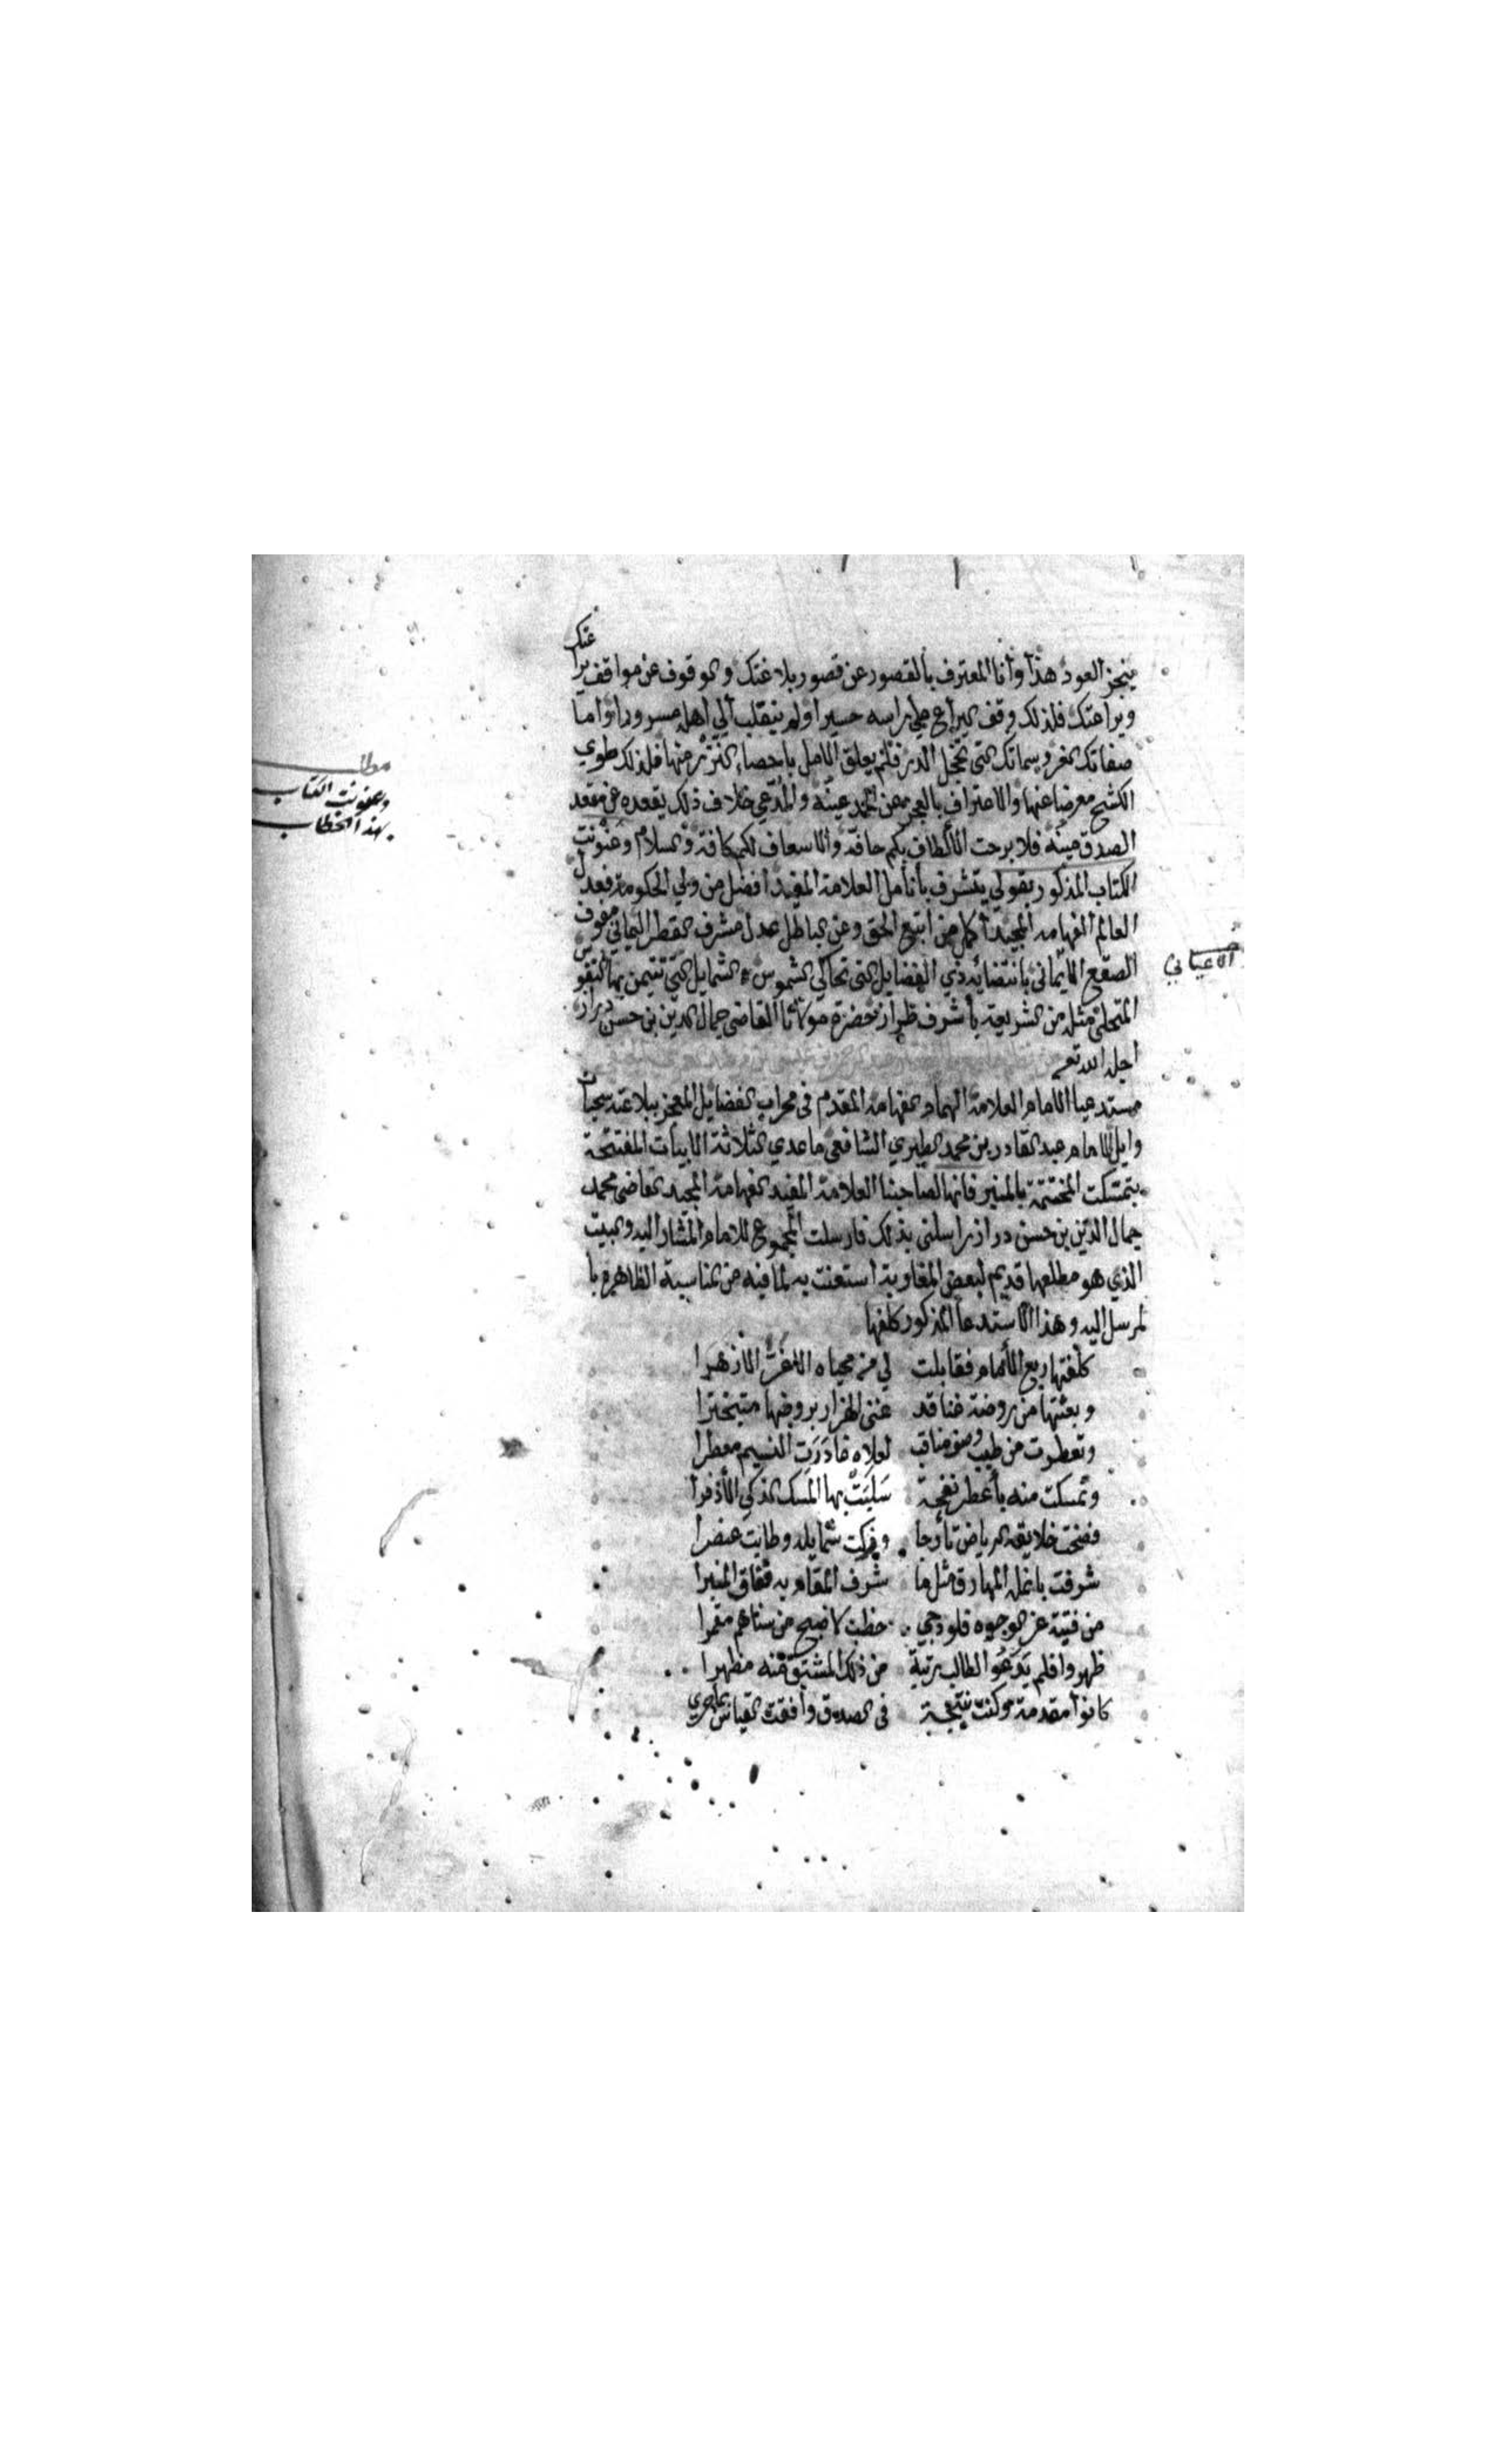 ينجز العود هذا وأنا المعترف بالقصور عن قصور بلاغتك والوقوف عن مواقف براعتك
ويراعتك فلذلك وقف اليراع على راسه حسيرا ولم ينقلب الى اهله مسرورا واما
صفاتك الغر وسماتك التى تخجل الدر فلم يعلق الامل باحصاء النزر منها فلذلك طوي
الكشح معرضا عنها والاعتراف بالعجز عن الحمد عينه والمدعي خلاف ذلك يقعده عن مقعد
الصدق مينه فلا برحت الألطاف بكم حافة والاسعاف لكم كافة والسلام وعنونت
الكتاب المذكور بقولي يتشرف بأنامل العلامة المفيد افضل من ولي الحكومة فعدل
العالم الفهامه المجيد أكمل من اتبع الحق وعن الباطل عدل مشرف القطر اليماني مفوف
الصقع الأيماني بانتضائه ذي الفضايل التى تحاكي الشموس والشمايل التي تتيمن بها النفوس
المتحلي مثله من الشريعة بأشرف طراز حضرة مولانا القاضي جمال الدين بن حسن دراز
اجله الله تعـ
مستدعيا الامام العلامة الهمام الفهامة المقدم في محراب الفضايل المعجز ببلاغته سحبان
وايل الامام عبد القادر بن محمد الطبري الشافعي ماعدي الثلاثة الابيات المفتتحة
بتمسكت المختتمة بالمنبر فانها لصاحبنا العلامة المفيد الفهامة المجيد القاضى محمد
جمال الدين بن حسن دراز راسلنى بذلك فارسلت المجموع للامام المشار اليه والبيت
الذي هو مطلعها قديم لبعض المغاربة استعنت به لما فيه من المناسبة الظاهرة با
لمرسل اليه وهذا الاستدعا المذكور كلفها
كلفتها ريع الأمام فقابلت لي من محياه الاغر الأزهرا
وبعثتها من روضة غنا قد غنى الهزار بروضها متبخترا
وتعطرت من طيب وصف مناقب لعلاه غادرت النسيم معطرا
وتمسكت منه بأعطر نفحة سلبت بها المسك الذكي الأذفرا
فضحت خلايقه الرياض تأرجا وزكت شمايله وطابت عنصرا
شرفت بانمله المهارق مثل ما شرف المقام به ففاق المنبرا
من فتية غر الوجوه فلو دجي خطب لاضبح من سناهم مقمرا
ظهروا فلم يدعوا لطالب رتبة من ذلك المشتق منه مظهرا
كانوا مقدمة وكنت نتيجة في الصدق وافقت القياس بلا مري
مطلـ
وعنونت الكتاب
بهذا الخطاب